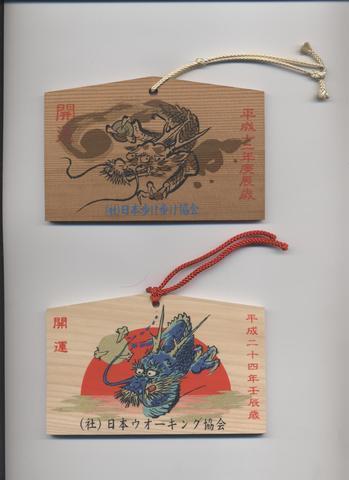 平成十二年庚辰歳
開
(社)日本歩け歩け協会
平成二十四年壬辰歳
開運
(社)日本ウオーキング協会